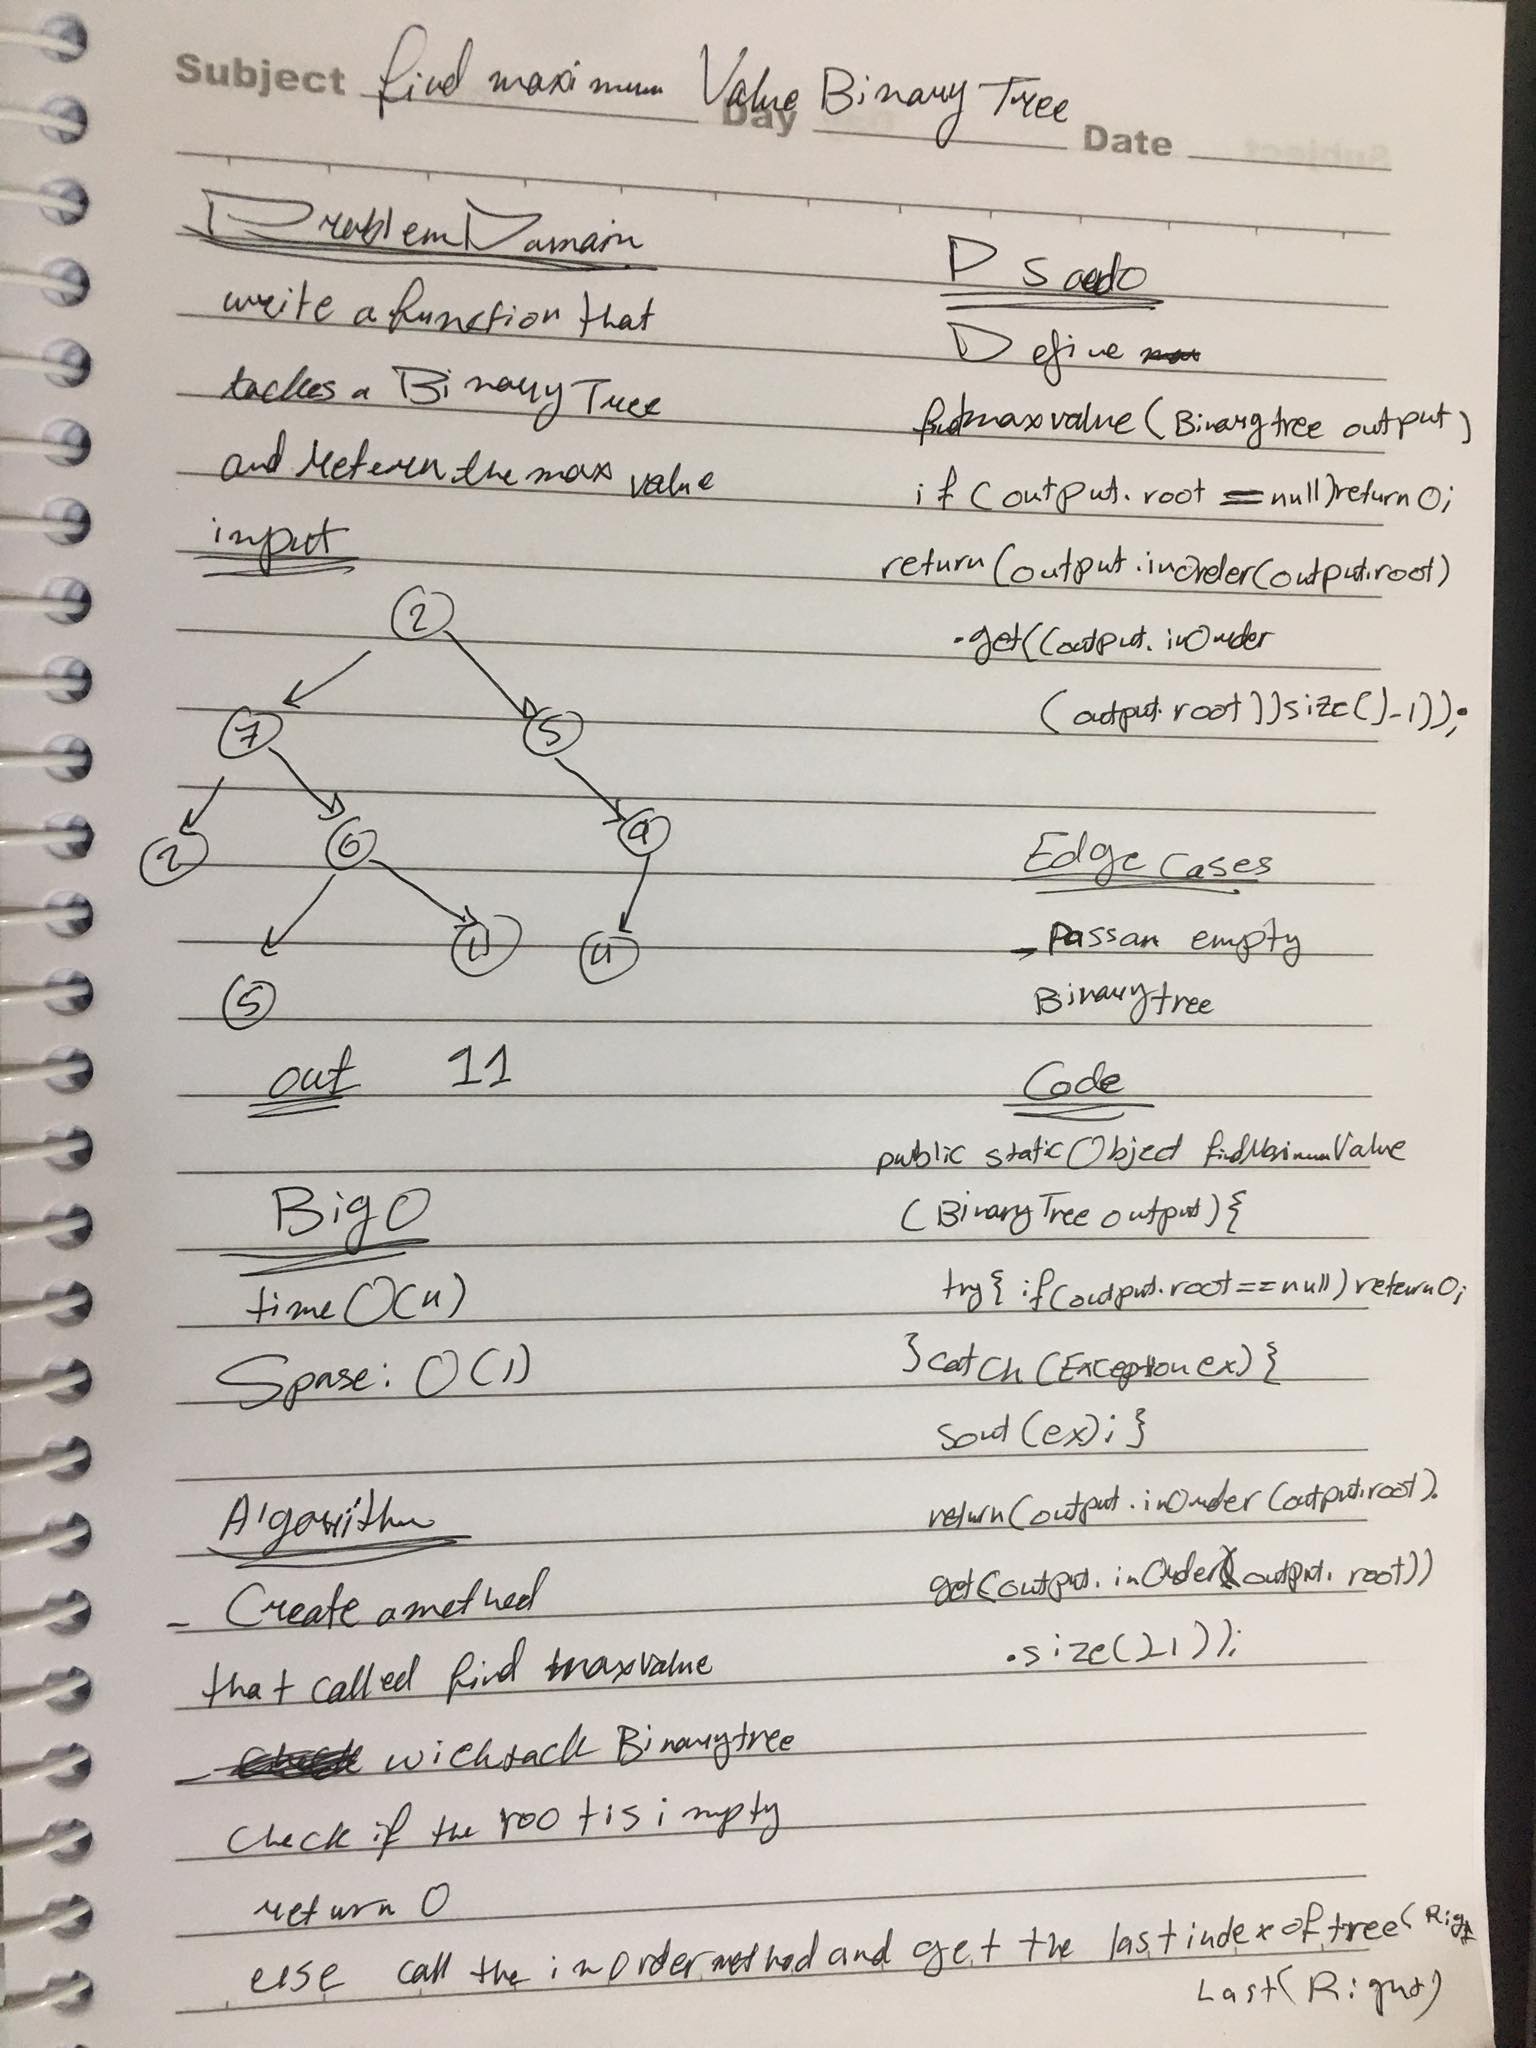 Subject find maximum Value Binary Tree
Day Date
Problem Domain
write a function that
tackes a Binary Tree
and retern the max value
input
2
7 5
2 6 9
5 11 4
out 11
Big O
time O(n)
Spase: O(1)
Algorithm
- Create a method
that called find maxvalue
- wich tack Binary tree
check if the root is impty
return 0
else call the inOrder method and get the last index of tree (Right
Last (Right)
Psoedo
Define
findmaxvalue (Binary tree output)
if (output.root == null) return 0;
return (output.inOrder(output.root)
.get((output.inOrder
(output.root)) size()-1));
Edge cases
- Pass an empty
Binary tree
Code
public static Object findMaximumValue
(Binary Tree output) {
try { if (output.root == null) return 0;
} catch (Exception ex) {
Sout (ex); }
return (output.inOrder (output.root).
get (output.inOrder (output.root))
.size()-1));